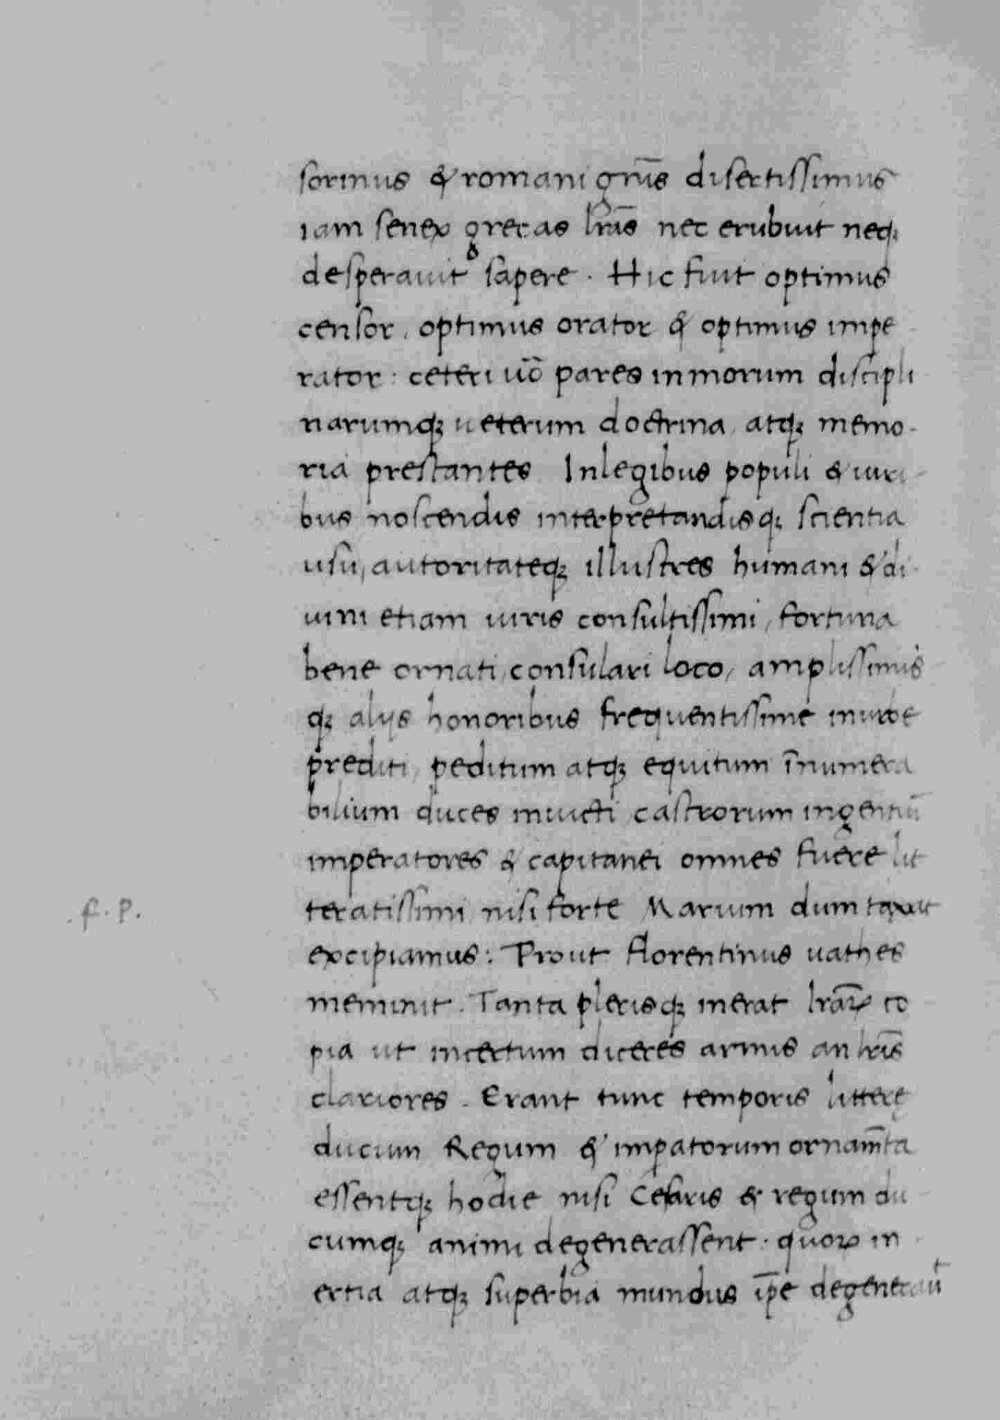 sorinus & romani gn̄is disertissimus
iam senex grecas lr̄as nec erubuit neqꝫ
desperauit sapere . Hic fuit optimus
censor, optimus orator & optimus impe
rator : ceteri uō pares in morum discipli
narumqꝫ ueterum doctrina, atqꝫ memo-
ria prestantes In legibus populi & iuri-
bus noscendis interpretandisqꝫ scientia
usu, autoritateqꝫ illustres humani & di-
uini etiam iuris consultissimi, fortuna
bene ornati, consulari loco, amplissimis
qꝫ alijs honoribus frequentissime in urbe
prediti, peditum atqꝫ equitum īnumera
bilium duces inuicti castrorum ingentiū
imperatores & capitanei omnes fuere lit
.f.P. teratissimi nisi forte Marium dum taxat
excipiamus : Prout florentinus uathes
meminit . Tanta plerisqꝫ inerat lr̄aꝝ co
pia ut incertum diceres armis an lr̄is
clariores . Erant tunc temporis littere
ducum Regum & imꝑatorum ornam̄ta
essentqꝫ hodie nisi Cesaris & regum du-
cumqꝫ animi degenerassent . quoꝝ in-
ertia atqꝫ superbia mundus ip̄e degenerauit